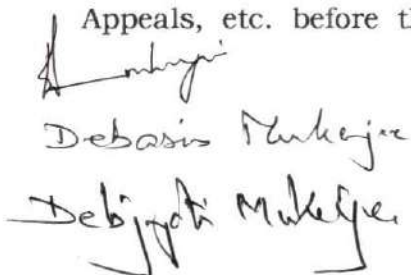 Appeals, etc. before th
Debasis Mukerjee
Debjyoti Mukerjee